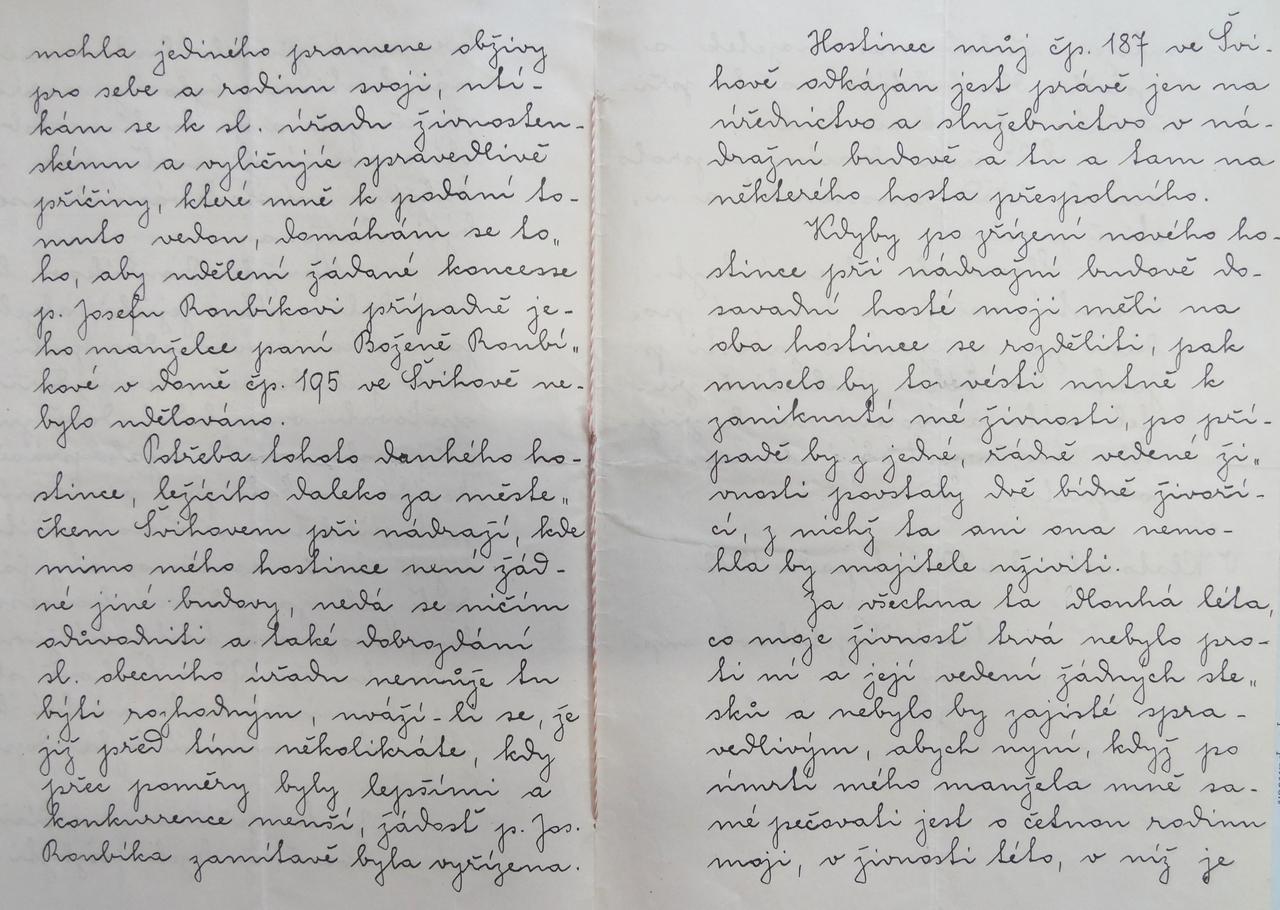 mohla jediného pramene obživy
pro sebe a rodinu svoji, utí-
kám se k sl. úřadu živnosten-
skému a vyličujíc spravedlivě
příčiny, které mně k podání to-
muto vedou, domáhám se to„
ho, aby udělení žádané koncesse
p. Josefu Roubíkovi případně je-
ho manželce paní Boženě Roubí„
kové v domě čp. 195 ve Švihově ne-
bylo udělováno.
Potřeba tohoto druhého ho-
stince, ležícího daleko za měste„
čkem Švihovem při nádraží, kde
mimo mého hostince není žád-
né jiné budovy, nedá se ničím
odůvodniti a také dobrozdání
sl. obecního úřadu nemůže tu
býti rozhodným, uváží-li se, že
již před tím několikráte, kdy
přec poměry byly lepšími a
konkurrence menší, žádosť p. Jos.
Roubíka zamítavě byla vyřízena.
Hostinec můj čp. 187 ve Švi-
hově odkázán jest právě jen na
úřednictvo a služebnictvo v ná-
dražní budově a tu a tam na
některého hosta přespolního.
Kdyby po zřízení nového ho-
stince při nádražní budově do-
savadní hosté moji měli na
oba hostince se rozděliti, pak
muselo by to vésti nutně k
zaniknutí mé živnosti, po pří-
padě by z jedné, řádně vedené ži„
vnosti povstaly dvě bídně živoří-
cí, z nichž ta ani ona nemo-
hla by majitele uživiti.
Za všechna ta dlouhá léta,
co moje živnosť trvá nebylo pro-
ti ní a její vedení žádných ste„
sků a nebylo by zajisté spra-
vedlivým, abych nyní, když po
úmrtí mého manžela mně sa-
mé pečovati jest o četnou rodinu
moji, v živnosti této, v níž je